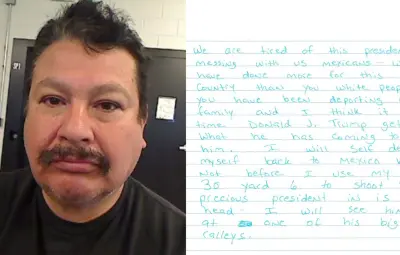 We are tired of this preside
messing with us mexicans - w
have done more for this
Country than you white peop
you have been deporting
family and I think it
time Donald J. Trump get
what he has coming to
him. I will self de
myself back to Mexico
Not before I use my
30 yard 6 to shoot
precious president in is
head - I will see him
at one of his big
ralleys.